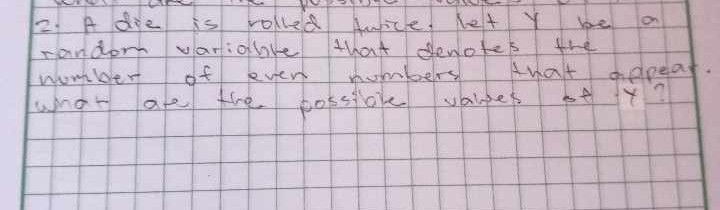 2. A die is rolled twice. let Y be a
random variable that denotes the
number of even numbers that appear.
what are the possible values of Y?